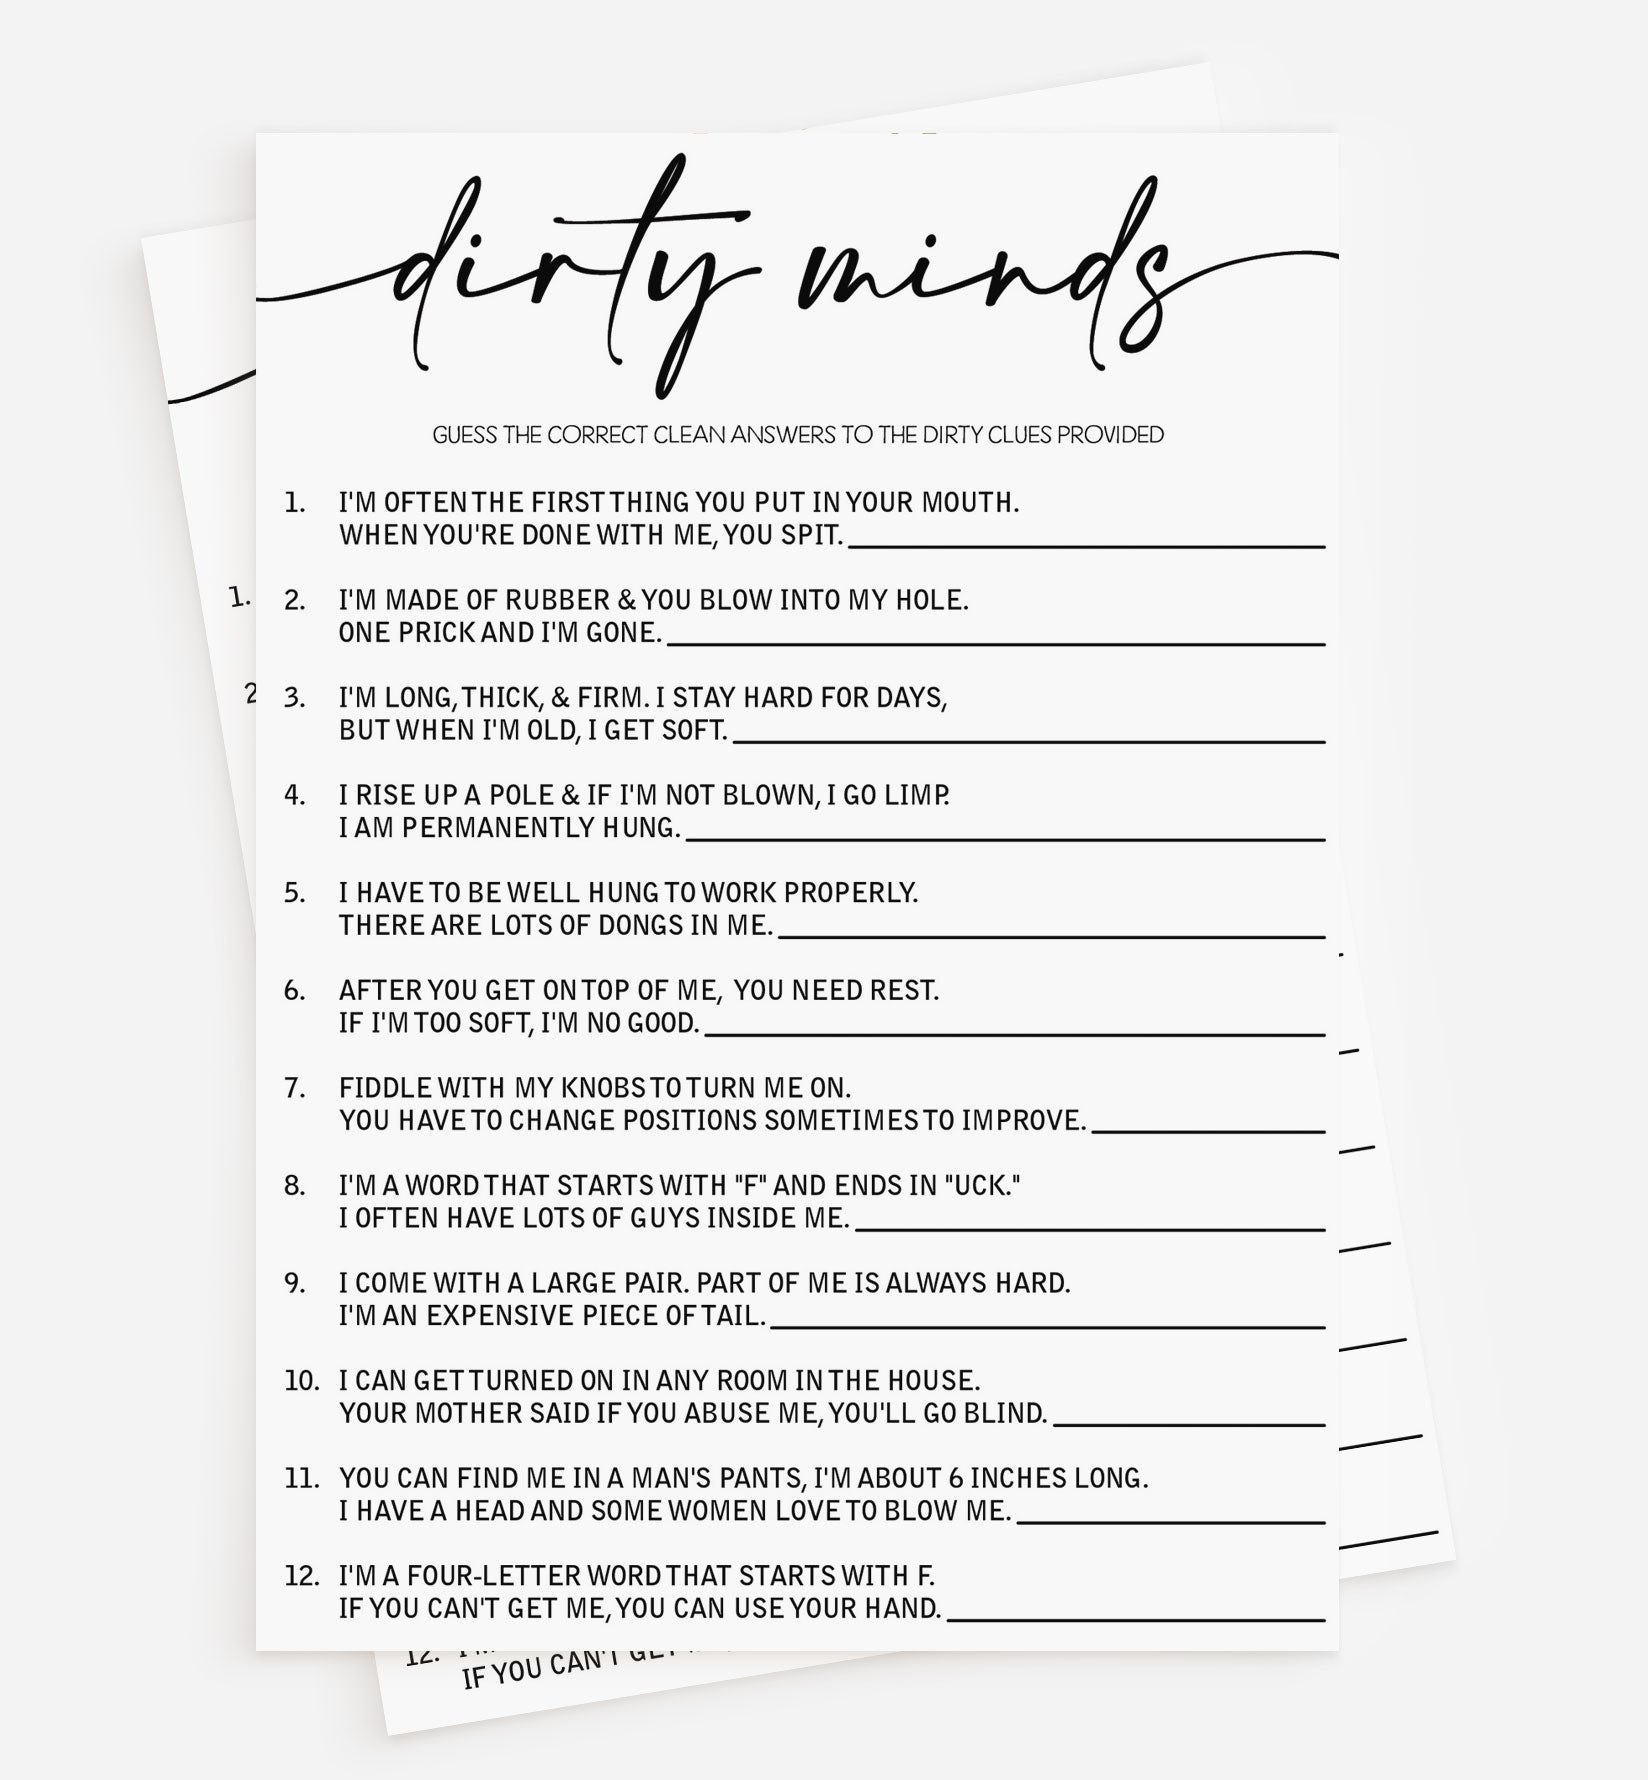 dirty minds
GUESS THE CORRECT CLEAN ANSWERS TO THE DIRTY CLUES PROVIDED
1. I'M OFTEN THE FIRST THING YOU PUT IN YOUR MOUTH.
WHEN YOU'RE DONE WITH ME, YOU SPIT.
2. I'M MADE OF RUBBER & YOU BLOW INTO MY HOLE.
ONE PRICK AND I'M GONE.
3. I'M LONG, THICK, & FIRM. I STAY HARD FOR DAYS,
BUT WHEN I'M OLD, I GET SOFT.
4. I RISE UP A POLE & IF I'M NOT BLOWN, I GO LIMP.
I AM PERMANENTLY HUNG.
5. I HAVE TO BE WELL HUNG TO WORK PROPERLY.
THERE ARE LOTS OF DONGS IN ME.
6. AFTER YOU GET ON TOP OF ME, YOU NEED REST.
IF I'M TOO SOFT, I'M NO GOOD.
7. FIDDLE WITH MY KNOBS TO TURN ME ON.
YOU HAVE TO CHANGE POSITIONS SOMETIMES TO IMPROVE.
8. I'M A WORD THAT STARTS WITH "F" AND ENDS IN "UCK."
I OFTEN HAVE LOTS OF GUYS INSIDE ME.
9. I COME WITH A LARGE PAIR. PART OF ME IS ALWAYS HARD.
I'M AN EXPENSIVE PIECE OF TAIL.
10. I CAN GET TURNED ON IN ANY ROOM IN THE HOUSE.
YOUR MOTHER SAID IF YOU ABUSE ME, YOU'LL GO BLIND.
11. YOU CAN FIND ME IN A MAN'S PANTS, I'M ABOUT 6 INCHES LONG.
I HAVE A HEAD AND SOME WOMEN LOVE TO BLOW ME.
12. I'M A FOUR-LETTER WORD THAT STARTS WITH F.
IF YOU CAN'T GET ME, YOU CAN USE YOUR HAND.
1.
2
12. I'M
IF YOU CAN'T GET